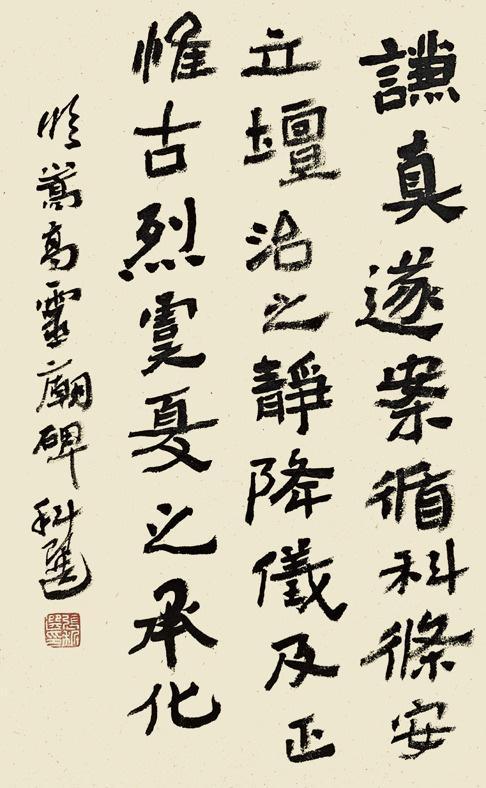 謙真遂案循科條安
立壇治之靜降儀及正
惟古烈虞夏之承化
臨嵩高靈廟碑 科選